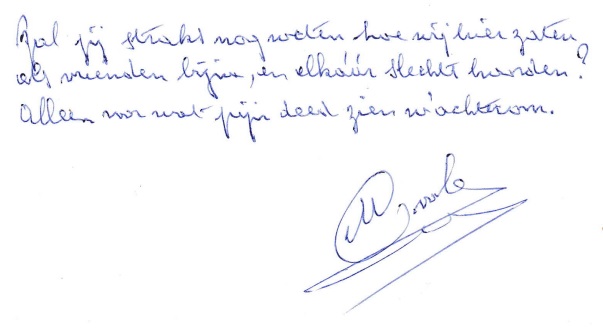 Zal jij straks nog weten hoe wij hier zaten
als vrienden bijna, en elkáár slecht kenden?
Alleen voor wat pijn deed zien w' achterom.